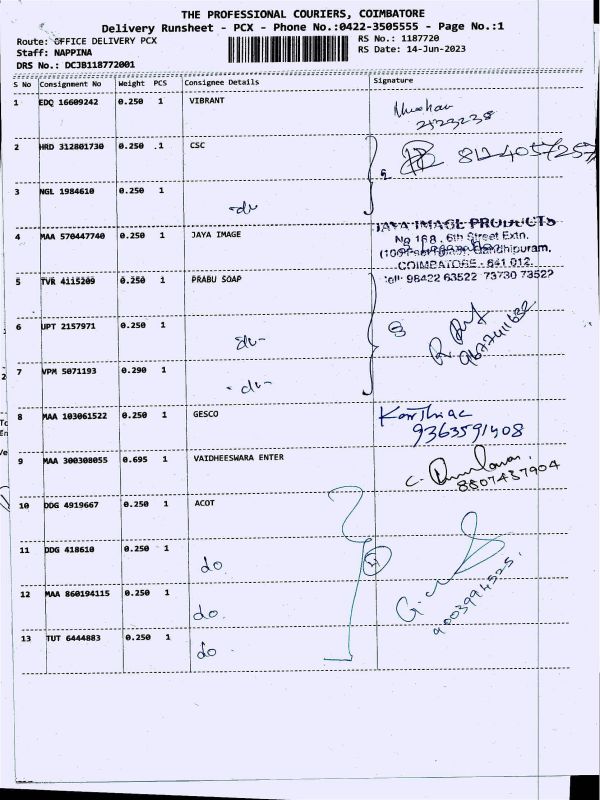 THE PROFESSIONAL COURIERS, COIMBATORE
Delivery Runsheet - PCX - Phone No.:0422-3505555 - Page No.:1
Route: OFFICE DELIVERY PCX RS No.: 1187720
Staff: NAPPINA RS Date: 14-Jun-2023
DRS No.: DCJB118772001
S No Consignment No Weight PCS Consignee Details Signature
1 EDQ 16609242 0.250 1 VIBRANT
2 HRD 312801730 0.250 1 CSC
3 NGL 1984610 0.250 1 -do-
4 MAA 570447740 0.250 1 JAYA IMAGE
JAYA IMAGE PRODUCTS
No 168, 6th Street Extn.
Gandhipuram,
COIMBATORE - 641 012.
98422 63522 73730 73522
5 TVR 4115209 0.250 1 PRABU SOAP
6 UPT 2157971 0.250 1 -do-
7 VPM 5071193 0.290 1 -do-
8 MAA 103061522 0.250 1 GESCO Karthiac
9363591408
9 MAA 300308055 0.695 1 VAIDHEESWARA ENTER C.
8807437904
10 DDG 4919667 0.250 1 ACOT
11 DDG 418610 0.250 1 do 4
12 MAA 860194115 0.250 1 do. G.
9003994525.
13 TUT 6444883 0.250 1 do.